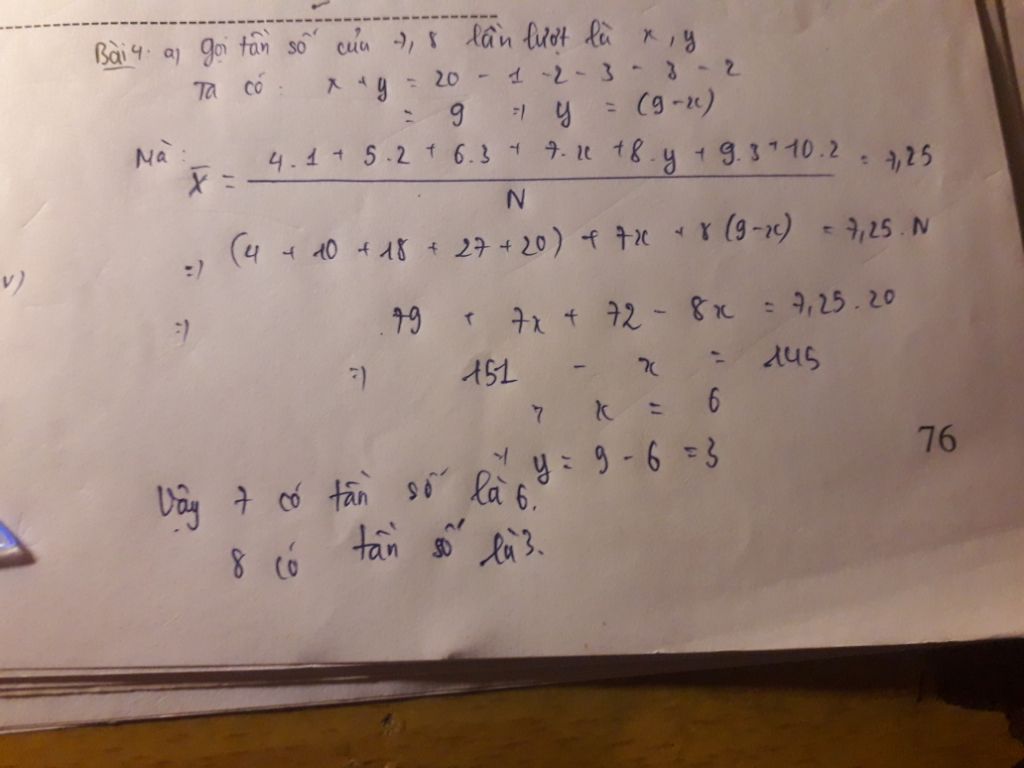 Bài 4. a) gọi tần số của 7, 8 lần lượt là x, y
Ta có: x + y = 20 - 1 - 2 - 3 - 3 - 2
= 9 => y = (9-x)
Mà:
X̄ = (4.1 + 5.2 + 6.3 + 7.x + 8.y + 9.3 + 10.2) / N = 7,25
=> (4 + 10 + 18 + 27 + 20) + 7x + 8(9-x) = 7,25.N
v)
=> 79 + 7x + 72 - 8x = 7,25.20
=> 151 - x = 145
x = 6
=> y = 9 - 6 = 3
76
Vậy 7 có tần số là 6.
8 có tần số là 3.